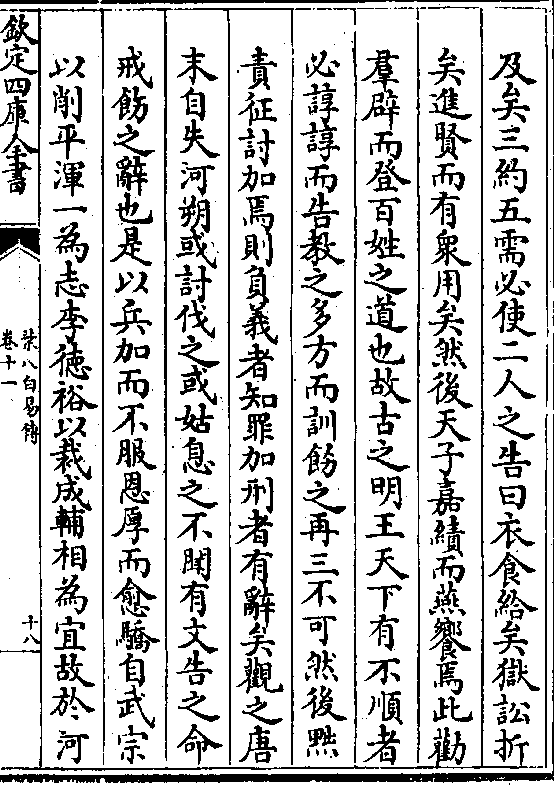 及矣三約五需必使二人之告曰衣食給矣獄訟折
矣進賢而有衆用矣然後天子嘉績而燕饗焉此勸
羣辟而登百姓之道也故古之明王天下有不順者
必諄諄而告教之多方而訓飭之再三不可然後黙
責征討加焉則負義者知罪加刑者有辭矣觀之唐
末自失河朔或討伐之或姑息之不聞有文告之命
戒飭之辭也是以兵加而不服恩厚而愈驕自武宗
以削平渾一為志李徳裕以裁成輔相為宜故於河
欽定四庫全書
柒八白易傳
卷十一
十八